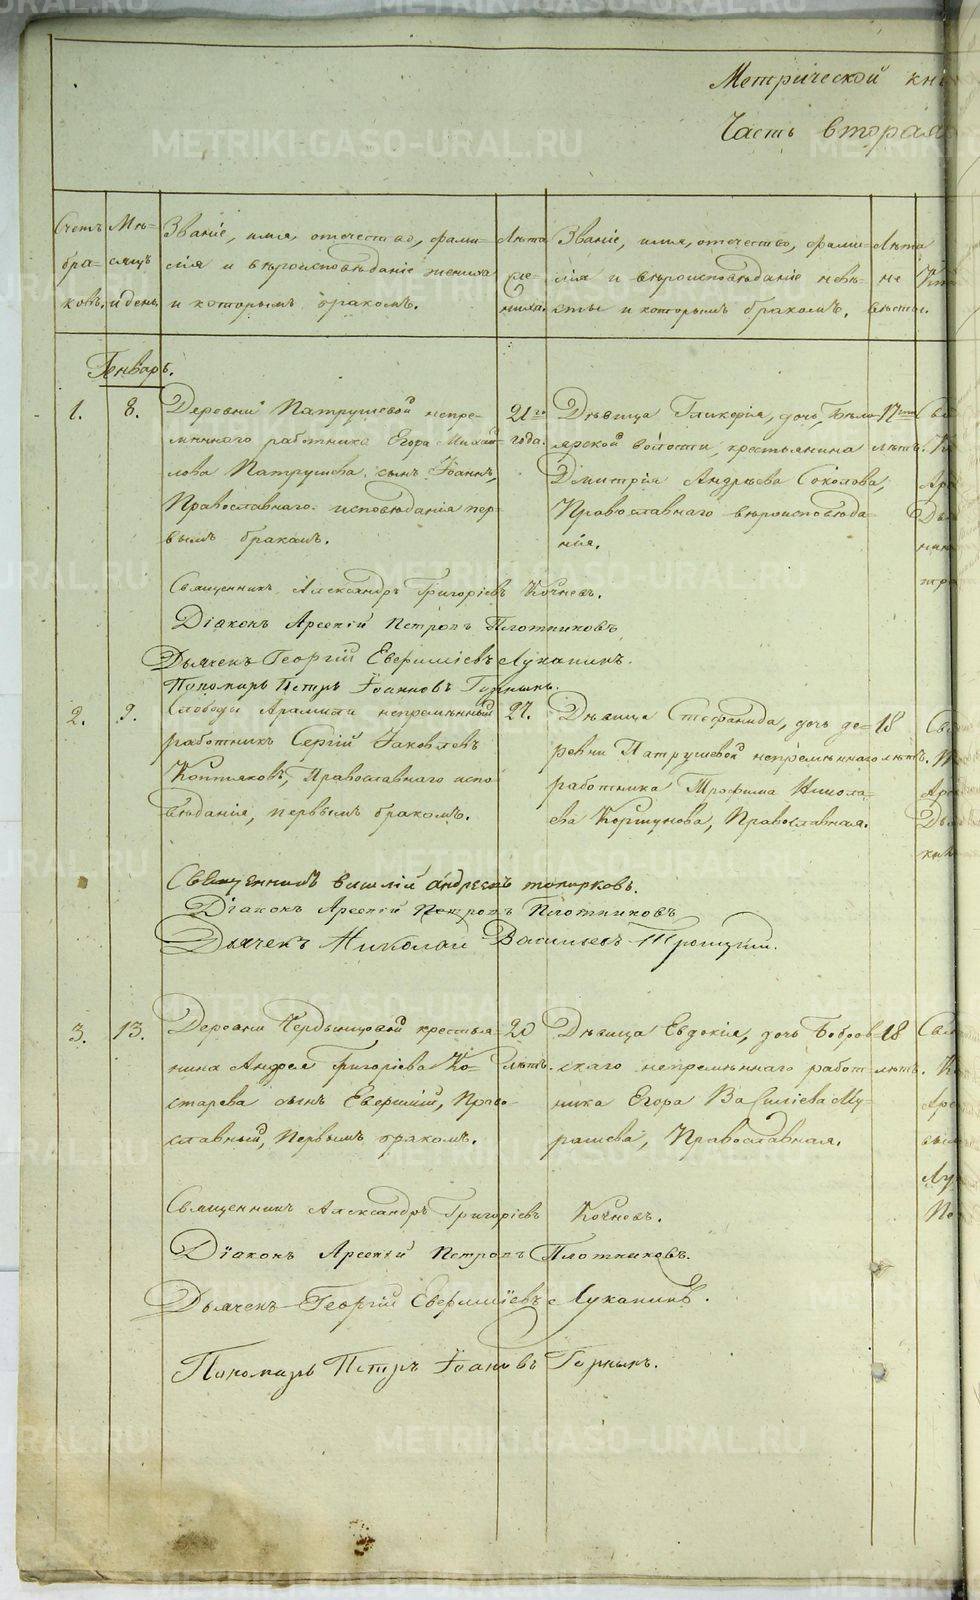 Метрической кни
Часть вторая
Счетъ бра- ковъ.
Мѣ- сяцъ и день
Званіе, имя, отечество, фами-
лія и вѣроисповѣданіе жениха
и которымъ бракомъ.
Лѣта же- ниха.
Званіе, имя, отечество, фами-
лія и вѣроисповѣданіе невѣ-
сты и которымъ бракомъ.
Лѣта не вѣсты.
Генварь.
1. 8.
Деревни Патрушевой непре-
мѣннаго работника Егора Михай-
лова Патрушева сынъ Іоаннъ,
Православнаго исповѣданія пер-
вымъ бракомъ.
21го года.
Дѣвица Гликерія, дочь Бѣло
ярской волости, крестьянина
Дмитрія Андрѣева Соколова,
Православнаго вѣроисповѣда-
нія.
17ти лѣтъ.
Священникъ Александръ Григоріевъ Кочневъ.
Діаконъ Арсеній Петровъ Плотниковъ
Дьячекъ Георгій Евфиміевъ Луканинъ.
Пономарь Петръ Іоанновъ Горныхъ.
2. 9.
Слободы Арамили непремѣнный
работникъ Сергій Іаковлевъ
Коптяковъ, Православнаго испо-
вѣданія, первымъ бракомъ.
27.
Дѣвица Стефанида, дочь де-
ревни Патрушевой непремѣннаго
работника Трофима Никола-
ева Коршунова, Православная.
18 лѣтъ.
Священникъ василій андреевъ топорковъ.
Діаконъ Арсеній Петровъ Плотниковъ
Дьячекъ Николай Васильевъ Троицкій.
3. 13.
Деревни крестья-
нина Андрея Григоріева Ко-
старева сынъ Евфимій, Право-
славный, первымъ бракомъ.
20 лѣтъ.
Дѣвица Евдокія, дочь Бобров
скаго непремѣннаго работ
ника Егора Василіева Му-
рашева, Православная.
18 лѣтъ.
Священникъ Александръ Григоріевъ Кочневъ.
Діаконъ Арсеній Петровъ Плотниковъ.
Дьячекъ Георгій Евфиміевъ Луканинъ.
Пономарь Петръ Іоановъ Горныхъ.
METRIKI.GASO-URAL.RU